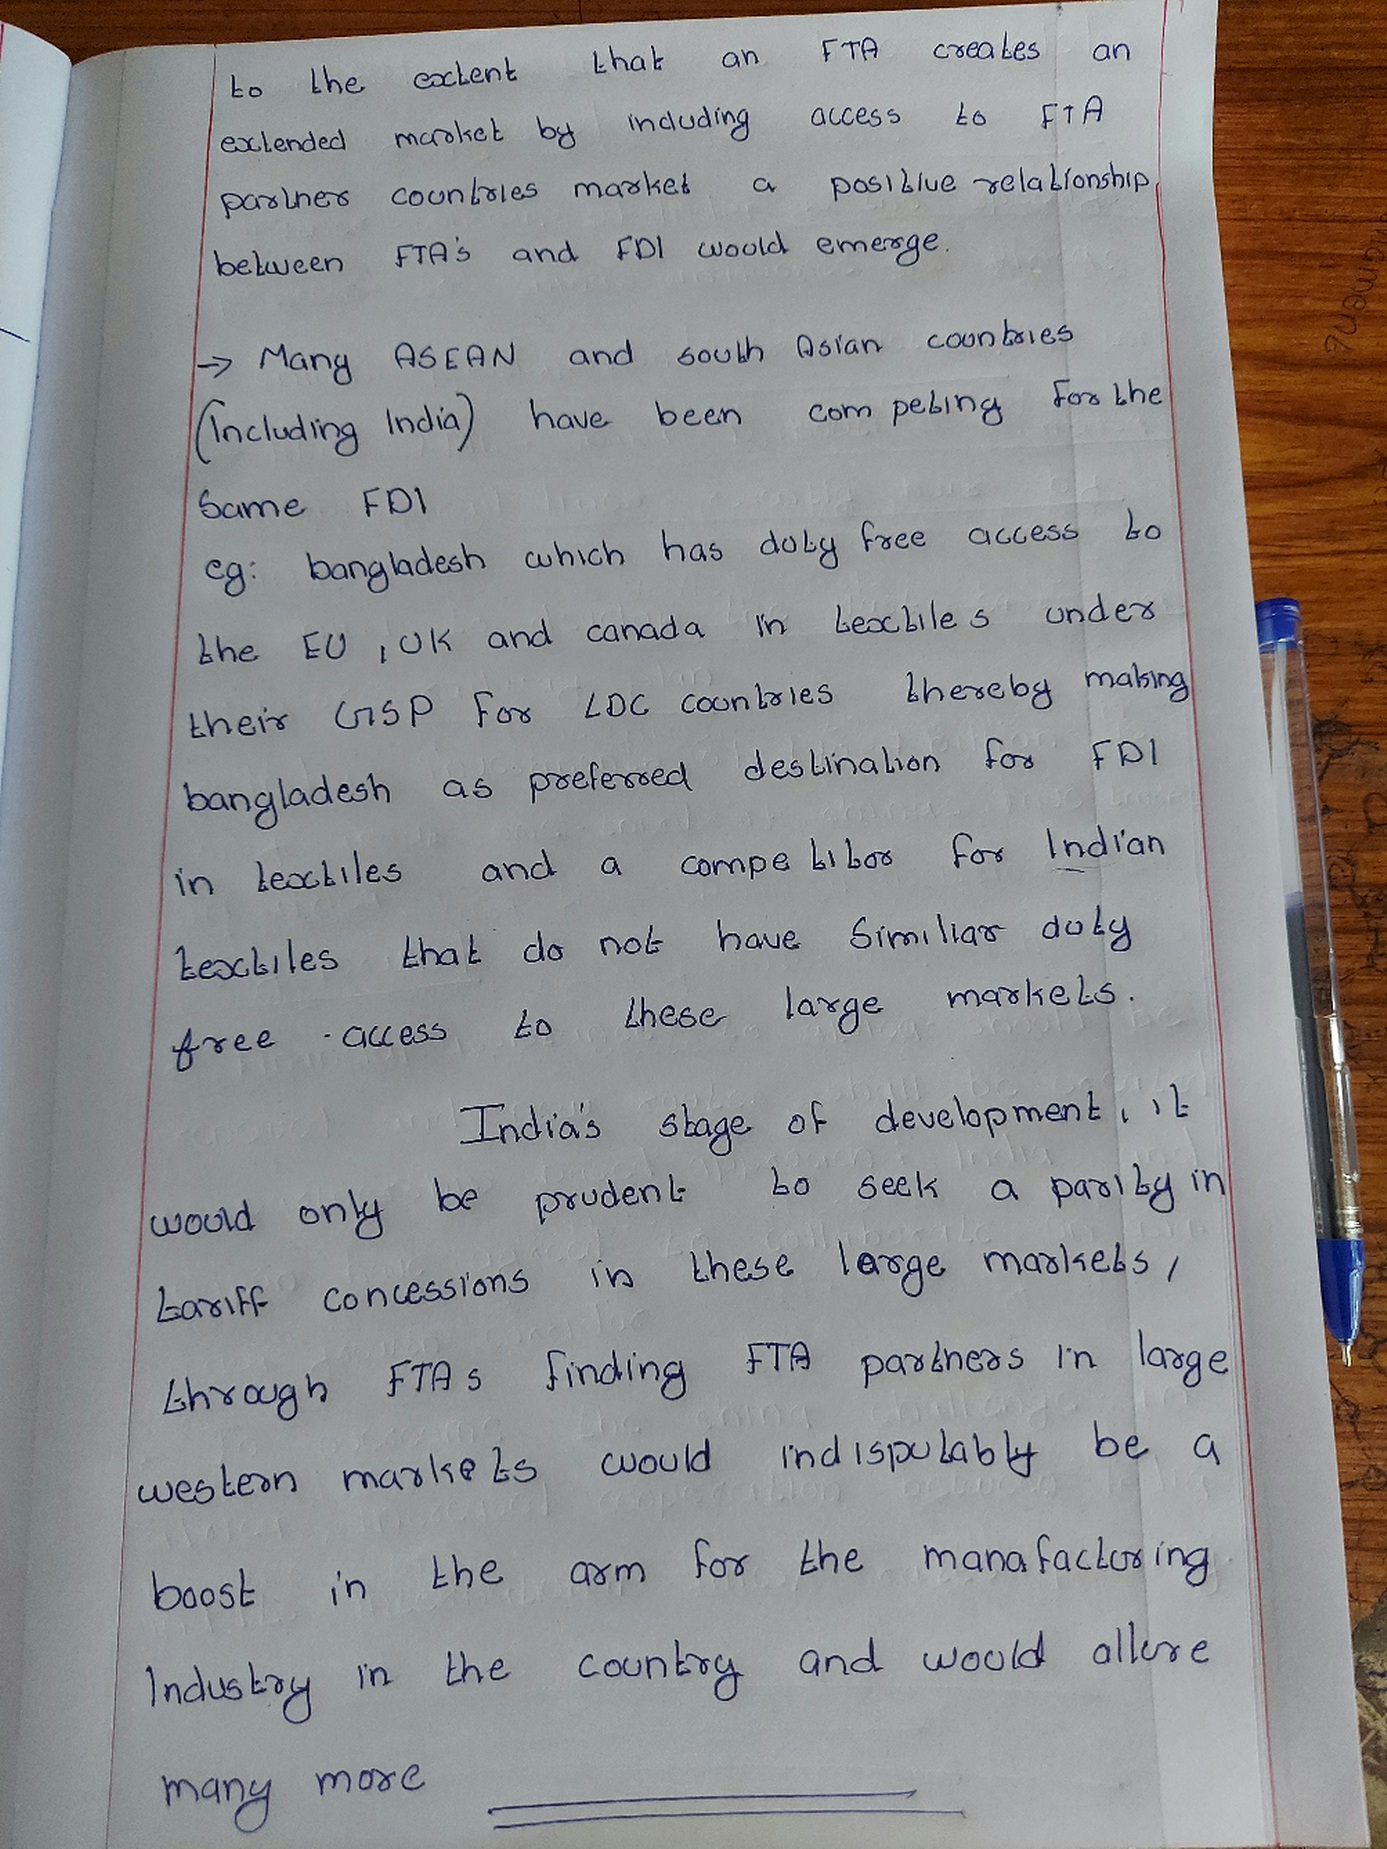 to the extent that an FTA creates an
extended market by including access to FTA
partner countries market a positive relationship
between FTA's and FDI would emerge.
→ Many ASEAN and south Asian countries
(Including India) have been competing for the
Same FDI
eg: bangladesh which has duty free access to
the EU, UK and canada in textiles under
their GSP for LDC countries thereby making
bangladesh as preferred destination for FDI
in textiles and a competitor for Indian
textiles that do not have Similiar duty
free access to these large markets.
India's stage of development, it
would only be prudent to seek a parity in
tariff concessions in these large markets,
through FTAs finding FTA partners in large
western markets would indisputably be a
boost in the arm for the manafacturing
Industry in the country and would allure
many more